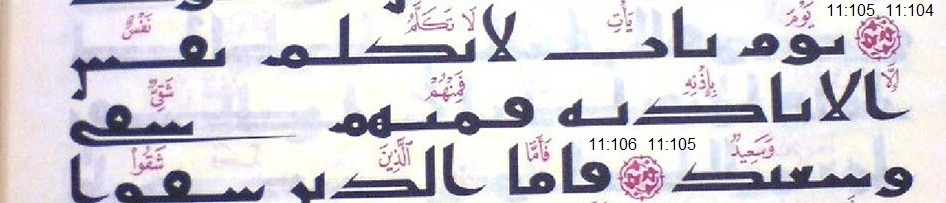 11:105 11:104
يَوْمَ يَأْتِ لَا تَكَلَّمُ نَفْسٌ
يوم يات لا تكلم نفس
إِلَّا بِإِذْنِهِ فَمِنْهُمْ شَقِيٌّ
الا باذنه فمنهم شقي
11:106 11:105
وَسَعِيدٌ فَأَمَّا الَّذِينَ شَقُوا
وسعيد فاما الذين شقوا